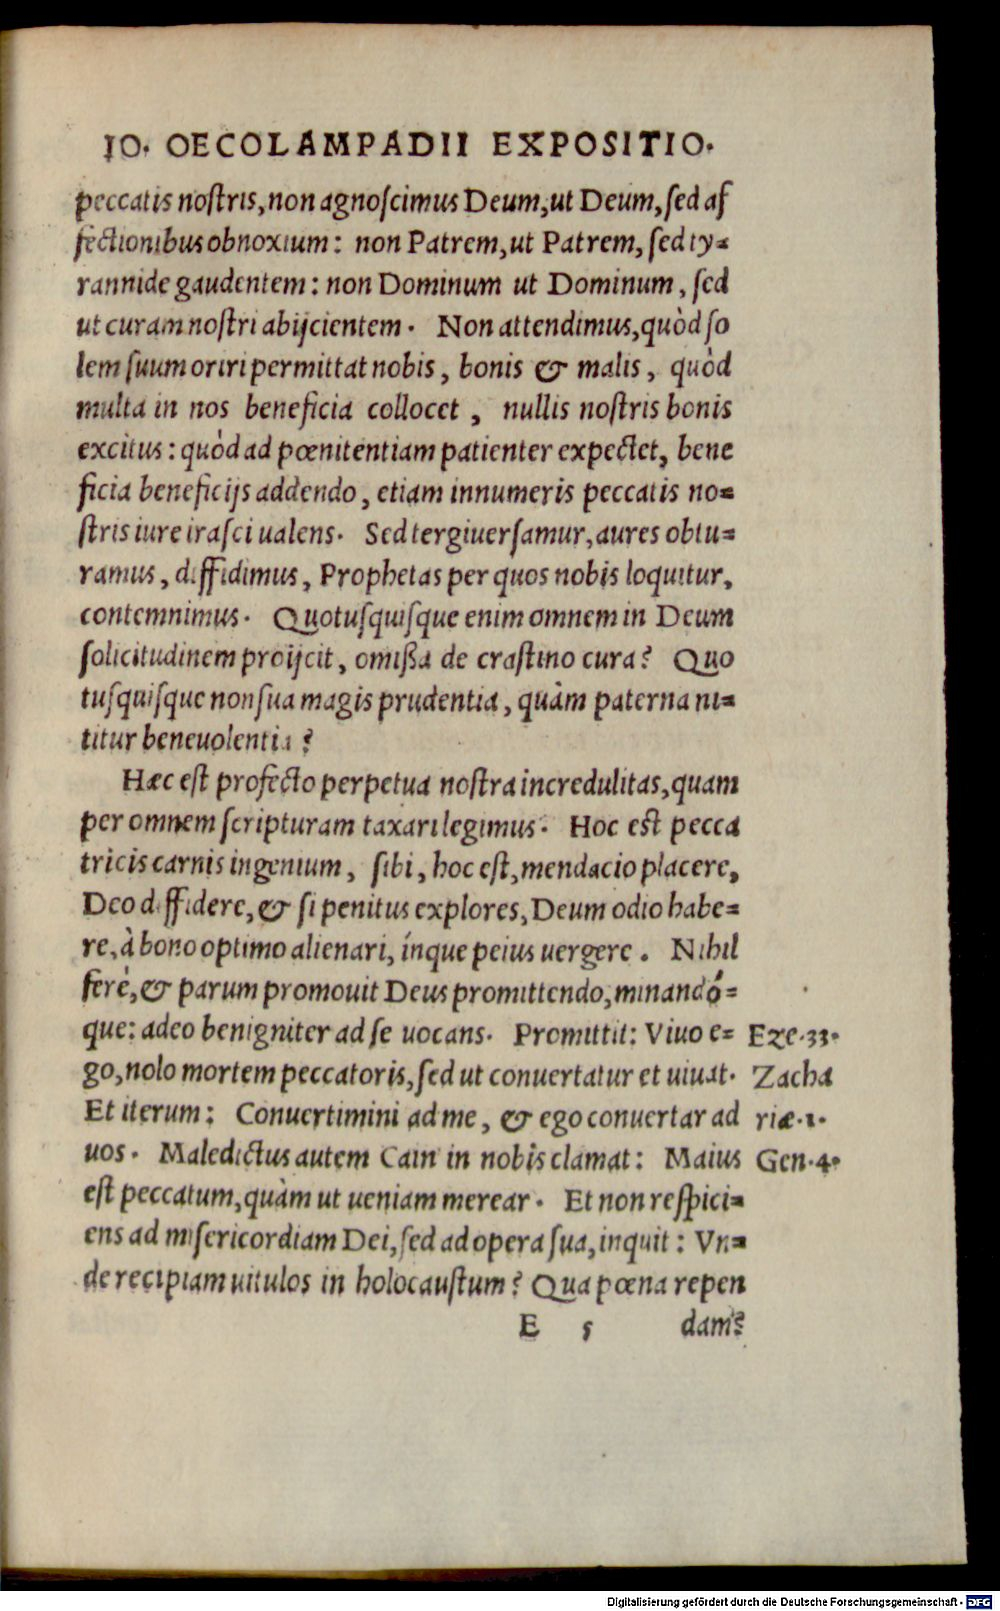 IO. OECOLAMPADII EXPOSITIO.
peccatis noſtris, non agnoſcimus Deum, ut Deum, ſed af
fectionibus obnoxium: non Patrem, ut Patrem, ſed ty=
rannide gaudentem: non Dominum ut Dominum, ſed
ut curam noſtri abijcientem. Non attendimus, quòd ſo
lem ſuum oriri permittat nobis, bonis & malis, quòd
multa in nos beneficia collocet, nullis noſtris bonis
excitus: quòd ad pœnitentiam patienter expectet, bene
ficia beneficijs addendo, etiam innumeris peccatis no=
ſtris iure iraſci ualens. Sed tergiuerſamur, aures obtu=
ramus, diffidimus, Prophetas per quos nobis loquitur,
contemnimus. Quotuſquiſque enim omnem in Deum
ſolicitudinem proijcit, omißa de craſtino cura? Quo
tuſquiſque non ſua magis prudentia, quàm paterna ni=
titur beneuolentia?
Hæc eſt profecto perpetua noſtra incredulitas, quam
per omnem ſcripturam taxari legimus. Hoc eſt pecca
tricis carnis ingenium, ſibi, hoc eſt, mendacio placere,
Deo diffidere, & ſi penitus explores, Deum odio habe=
re, à bono optimo alienari, ínque peius uergere. Nihil
ferè, & parum promouit Deus promittendo, minandó=
que: adeo benigniter ad ſe uocans. Promittit: Viuo e= Eze.33.
go, nolo mortem peccatoris, ſed ut conuertatur et uiuat. Zacha
Et iterum: Conuertimini ad me, & ego conuertar ad riæ.1.
uos. Maledictus autem Cain in nobis clamat: Maius Gen.4.
eſt peccatum, quàm ut ueniam merear. Et non reſpici=
ens ad miſericordiam Dei, ſed ad opera ſua, inquit: Vn=
de recipiam uitulos in holocauſtum? Qua pœna repen
E 5 dam?
Digitalisierung gefördert durch die Deutsche Forschungsgemeinschaft - DFG